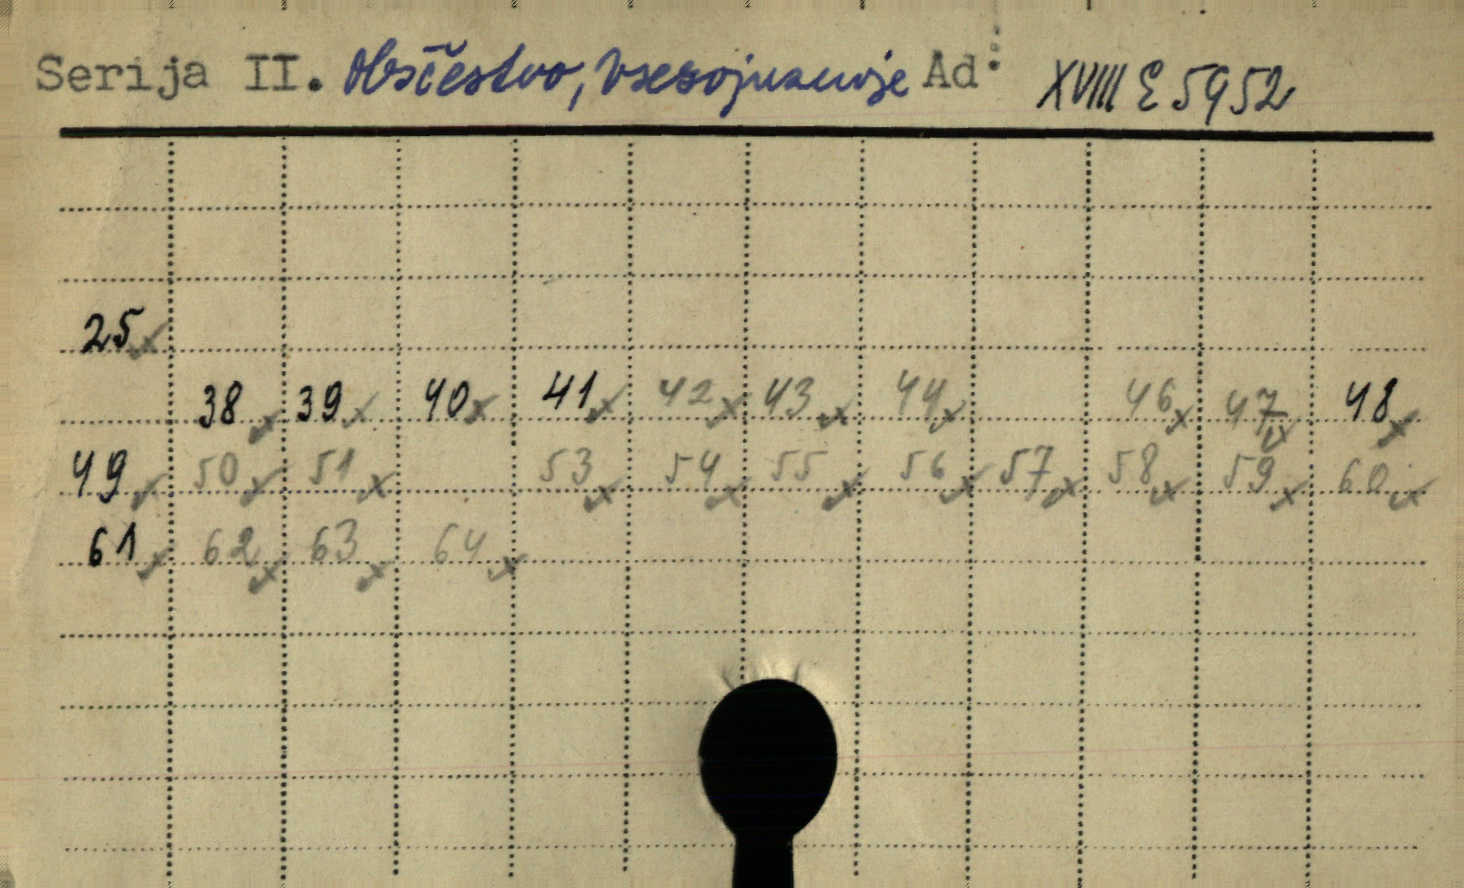 Serija II. Obščestvo, Vsesojuznoje Ad: XVIII E 5952
25
38 39 40 41 42 43 44 46 47 48
49 50 51 53 54 55 56 57 58 59 60
61 62 63 64